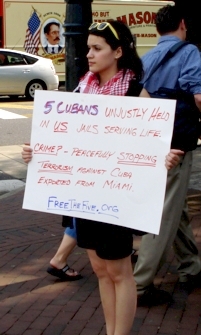 DER MASON
5 CUBANS UNJUSTLY HELD
IN US JAILS SERVING LIFE.
CRIME? - PEACEFULLY STOPPING
TERRORISM AGAINST CUBA
EXPORTED FROM MIAMI.
FREETHEFIVE.ORG